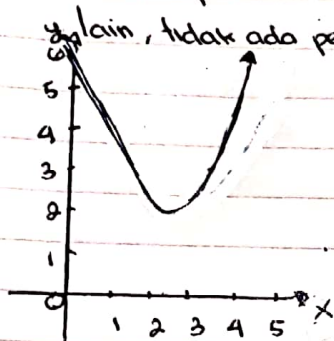 lain, tidak ada
y
6
5
4
3
2
1
0
1 2 3 4 5 X